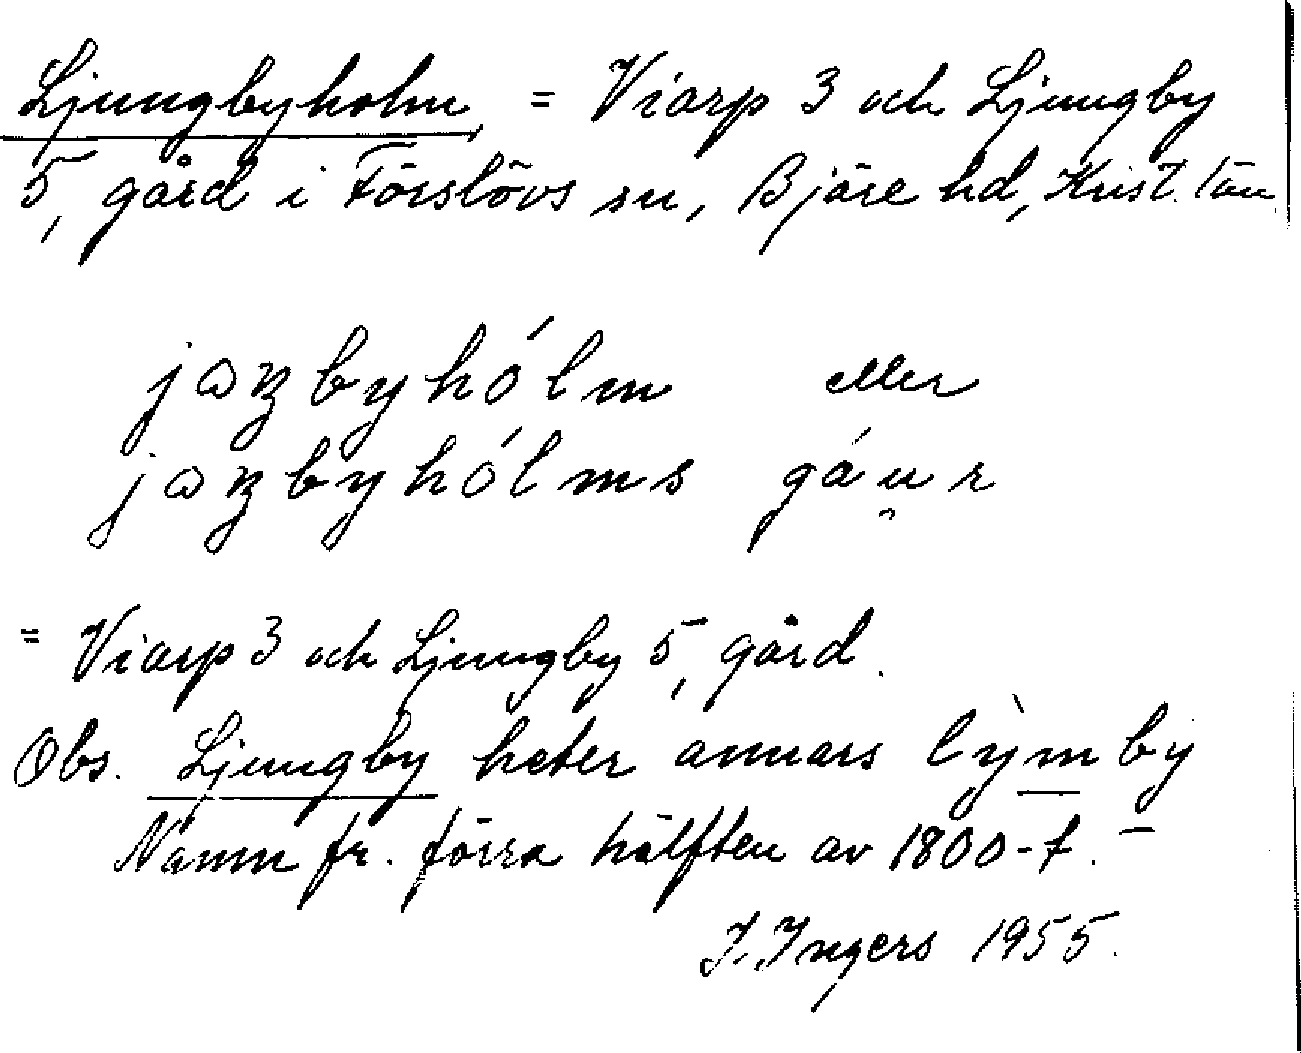 Ljungbyholm = Viarp 3 och Ljungby
5, gård i Förslövs sn, Bjäre hd, Krist. län
jaŋbyhólm eller
jaŋbyhólms gáu̯r
= Viarp 3 och Ljungby 5, gård.
Obs. Ljungby heter annars lỳmby
Namn fr. förra hälften av 1800-t. –
I. Ingers 1955.